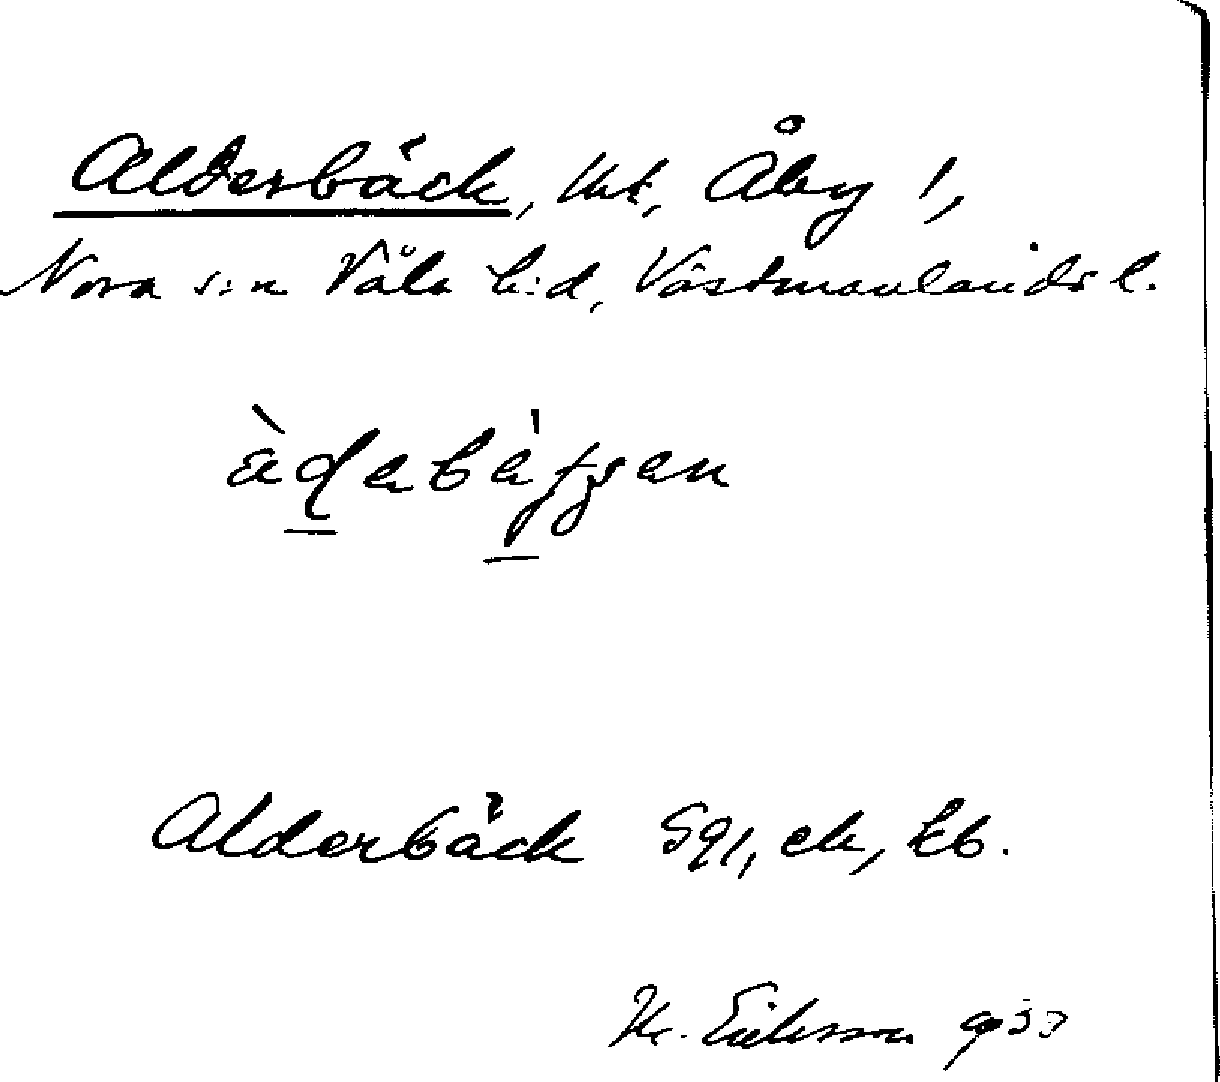 Alderbäck, lht, Åby 1,
Nora s:n Våla h:d, Västmanlands l.
Alderbäck Sgl, ek, kb.
Hr. Eriksson 1933